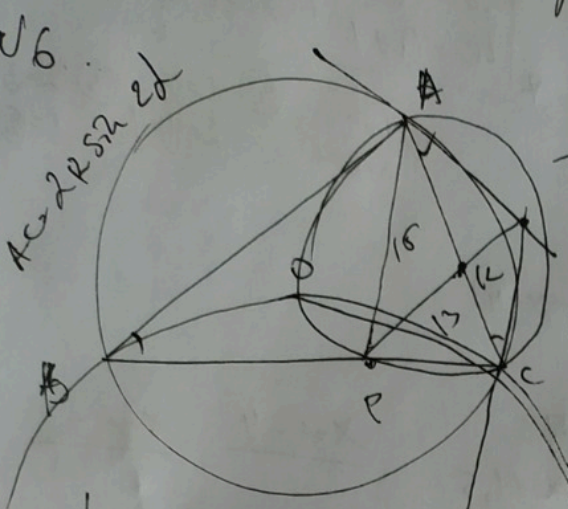 √6.
AC = 2R sin 2α
A
O
16
K
13
B
P
C